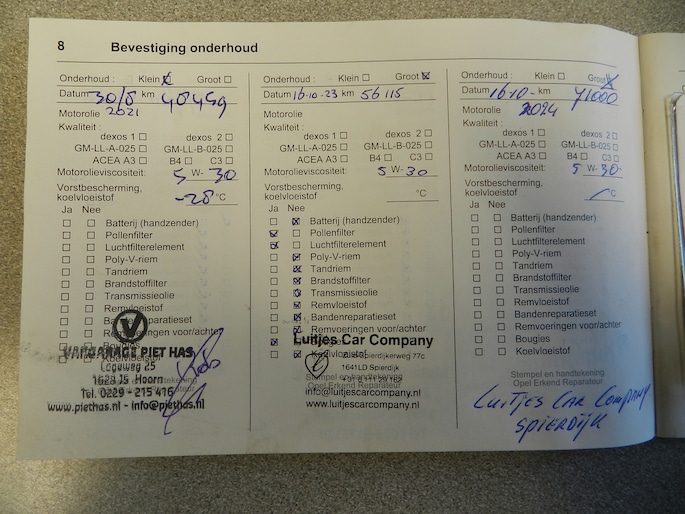 8 Bevestiging onderhoud
Onderhoud : Klein Groot
Datum 30/8 km 48459
2021
Motorolie
Kwaliteit :
dexos 1 dexos 2
GM-LL-A-025 GM-LL-B-025
ACEA A3 B4 C3
Motorolieviscositeit: 5 W- 30
Vorstbescherming,
koelvloeistof -28 °C
Ja Nee
Batterij (handzender)
Pollenfilter
Luchtfilterelement
Poly-V-riem
Tandriem
Brandstoffilter
Transmissieolie
Remvloeistof
Bandenreparatieset
Remvoeringen voor/achter
Bougies
Koelvloeistof
VAKGARAGE PIET HAS
Lageweg 25
Hoorn
Tel. 0229 - 215 416
www.piethas.nl - info@piethas.nl
Onderhoud : Klein Groot
Datum 16-10-23 km 56115
Motorolie
Kwaliteit :
dexos 1 dexos 2
GM-LL-A-025 GM-LL-B-025
ACEA A3 B4 C3
Motorolieviscositeit: 5 W- 30
Vorstbescherming,
koelvloeistof °C
Ja Nee
Batterij (handzender)
Pollenfilter
Luchtfilterelement
Poly-V-riem
Tandriem
Brandstoffilter
Transmissieolie
Remvloeistof
Bandenreparatieset
Remvoeringen voor/achter
Luitjes Car Company
Koelvloeistof
Zuid-Spierdijkerweg 77c
1641LD Spierdijk
Stempel en handtekening
Opel Erkend Reparateur
info@luitjescarcompany.nl
www.luitjescarcompany.nl
Onderhoud : Klein Groot
Datum 16-10- km 71000
2024
Motorolie
Kwaliteit :
dexos 1 dexos 2
GM-LL-A-025 GM-LL-B-025
ACEA A3 B4 C3
Motorolieviscositeit: 5 W- 30
Vorstbescherming,
koelvloeistof °C
Ja Nee
Batterij (handzender)
Pollenfilter
Luchtfilterelement
Poly-V-riem
Tandriem
Brandstoffilter
Transmissieolie
Remvloeistof
Bandenreparatieset
Remvoeringen voor/achter
Bougies
Koelvloeistof
Stempel en handtekening
Opel Erkend Reparateur
Luitjes Car Company
Spierdijk